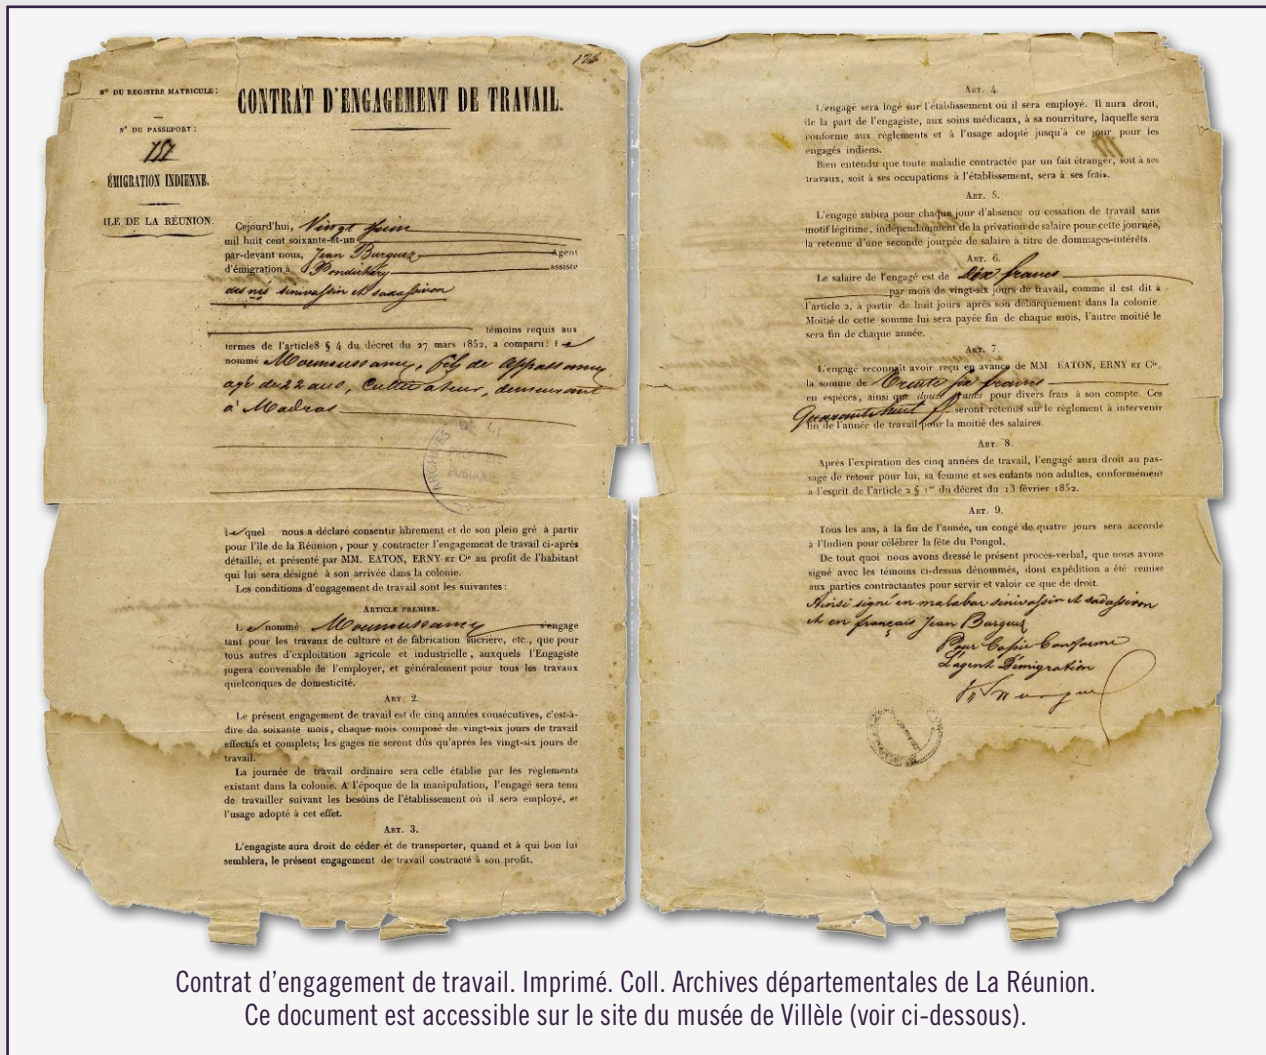 136
N° DU REGISTRE MATRICULE :
CONTRAT D'ENGAGEMENT DE TRAVAIL.
N° DU PASSEPORT :
757
ÉMIGRATION INDIENNE.
ILE DE LA RÉUNION.
Cejourd'hui, Vingt Juin
mil huit cent soixante-et-un
par-devant nous, Jean Burguez Agent
d'émigration à Pondichéry assisté
des nés Sinivassin et Sadassivon
témoins requis aux
termes de l'article8 § 4 du décret du 27 mars 1852, a comparu : le
nommé Mounoussamy, fils de Appassamy
agé de 22 ans, Cultivateur, demeurant
à Madras
ARCHIVES DE LA
le quel nous a déclaré consentir librement et de son plein gré à partir
pour l'île de la Réunion, pour y contracter l'engagement de travail ci-après
détaillé, et présenté par MM. EATON, ERNY ET Cie au profit de l'habitant
qui lui sera désigné à son arrivée dans la colonie.
Les conditions d'engagement de travail sont les suivantes :
ARTICLE PREMIER.
Le nommé Mounoussamy s'engage
tant pour les travaux de culture et de fabrication sucrière, etc., que pour
tous autres d'exploitation agricole et industrielle, auxquels l'Engagiste
jugera convenable de l'employer, et généralement pour tous les travaux
quelconques de domesticité.
ART. 2.
Le présent engagement de travail est de cinq années consécutives, c'est-à-
dire de soixante mois, chaque mois composé de vingt-six jours de travail
effectifs et complets; les gages ne seront dûs qu'après les vingt-six jours de
travail.
La journée de travail ordinaire sera celle établie par les règlements
existant dans la colonie. A l'époque de la manipulation, l'engagé sera tenu
de travailler suivant les besoins de l'établissement où il sera employé, et
l'usage adopté à cet effet.
ART. 3.
L'engagiste aura droit de céder et de transporter, quand et à qui bon lui
semblera, le présent engagement de travail contracté à son profit.
ART. 4.
L'engagé sera logé sur l'établissement où il sera employé. Il aura droit,
de la part de l'engagiste, aux soins médicaux, à sa nourriture, laquelle sera
conforme aux règlements et à l'usage adopté jusqu'à ce jour pour les
engagés indiens.
Bien entendu que toute maladie contractée par un fait étranger, soit à ses
travaux, soit à ses occupations à l'établissement, sera à ses frais.
ART. 5.
L'engagé subira pour chaque jour d'absence ou cessation de travail sans
motif légitime, indépendamment de la privation de salaire pour cette journée,
la retenue d'une seconde journée de salaire à titre de dommages-intérêts.
ART. 6.
Le salaire de l'engagé est de dix francs
par mois de vingt-six jours de travail, comme il est dit à
l'article 2, à partir de huit jours après son débarquement dans la colonie.
Moitié de cette somme lui sera payée fin de chaque mois, l'autre moitié le
sera fin de chaque année.
ART. 7.
L'engagé reconnait avoir reçu en avance de MM. EATON, ERNY ET Cie,
la somme de Trente six francs
en espèces, ainsi que douze francs pour divers frais à son compte. Ces
Quarante huit f seront retenus sur le règlement à intervenir
fin de l'année de travail pour la moitié des salaires.
ART. 8.
Après l'expiration des cinq années de travail, l'engagé aura droit au pas-
sage de retour pour lui, sa femme et ses enfants non adultes, conformément
à l'esprit de l'article 2 § 1er du décret du 13 février 1852.
ART. 9.
Tous les ans, à la fin de l'année, un congé de quatre jours sera accordé
à l'Indien pour célébrer la fête du Pongol.
De tout quoi nous avons dressé le présent procès-verbal, que nous avons
signé avec les témoins ci-dessus dénommés, dont expédition a été remise
aux parties contractantes pour servir et valoir ce que de droit.
Ainsi signé en malabar Sinivassin et Sadassivon
et en français Jean Burguez
Pour Copie Conforme
L'agent D'émigration
Contrat d'engagement de travail. Imprimé. Coll. Archives départementales de La Réunion.
Ce document est accessible sur le site du musée de Villèle (voir ci-dessous).